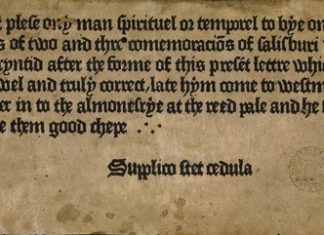 t plese ony man spirituel or temporel to bye on
s of two and thre comemoraciōs of salisburi
ryntid after the forme of this presēt lettre whic
wel and truly correct, late hym come to westm
er in to the almonesrye at the reed pale and he s
e them good chepe ∴
Supplico stet cedula